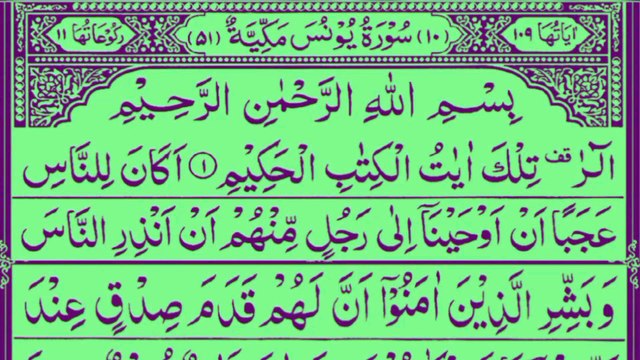 اٰيَاتُهَا ١٠٩ (١٠) سُوْرَةُ يُوْنُسَ مَكِّيَّةٌ (٥١) رُكُوْعَاتُهَا ١١
بِسْمِ اللّٰهِ الرَّحْمٰنِ الرَّحِيْمِ
الٓرٰ قف تِلْكَ اٰيٰتُ الْكِتٰبِ الْحَكِيْمِ ١ اَكَانَ لِلنَّاسِ
عَجَبًا اَنْ اَوْحَيْنَآ اِلٰى رَجُلٍ مِّنْهُمْ اَنْ اَنْذِرِ النَّاسَ
وَبَشِّرِ الَّذِيْنَ اٰمَنُوْٓا اَنَّ لَهُمْ قَدَمَ صِدْقٍ عِنْدَ